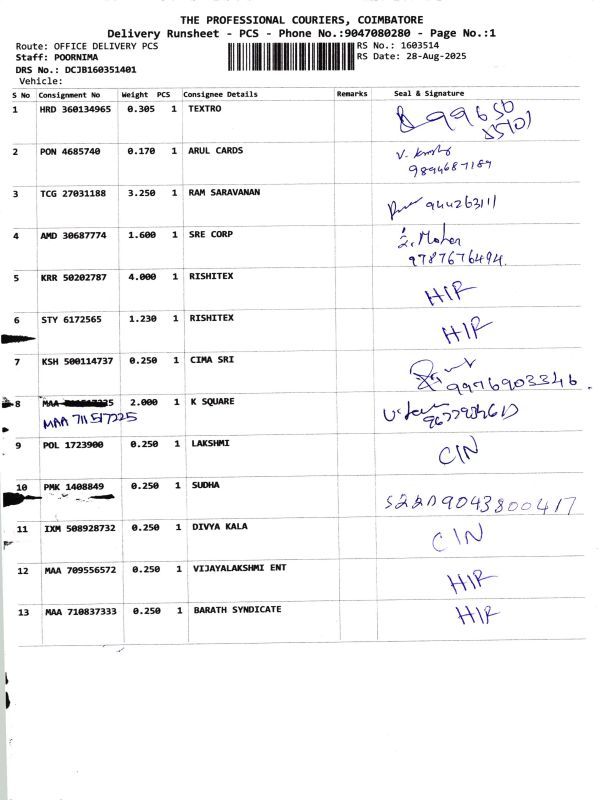 THE PROFESSIONAL COURIERS, COIMBATORE
Delivery Runsheet - PCS - Phone No.:9047080280 - Page No.:1
Route: OFFICE DELIVERY PCS RS No.: 1603514
Staff: POORNIMA RS Date: 28-Aug-2025
DRS No.: DCJB160351401
Vehicle:
S No Consignment No Weight PCS Consignee Details Remarks Seal & Signature
1 HRD 360134965 0.305 1 TEXTRO 99650
25101
2 PON 4685740 0.170 1 ARUL CARDS
9894687189
3 TCG 27031188 3.250 1 RAM SARAVANAN 944263111
4 AMD 30687774 1.600 1 SRE CORP
9787676494.
5 KRR 50202787 4.000 1 RISHITEX HIR
6 STY 6172565 1.230 1 RISHITEX HIR
7 KSH 500114737 0.250 1 CIMA SRI
9976903346.
8 MAA 2.000 1 K SQUARE
MAA 711517225
9 POL 1723900 0.250 1 LAKSHMI CIN
10 PMK 1408849 0.250 1 SUDHA 9043800417
11 IXM 508928732 0.250 1 DIVYA KALA CIN
12 MAA 709556572 0.250 1 VIJAYALAKSHMI ENT HIR
13 MAA 710837333 0.250 1 BARATH SYNDICATE HIR